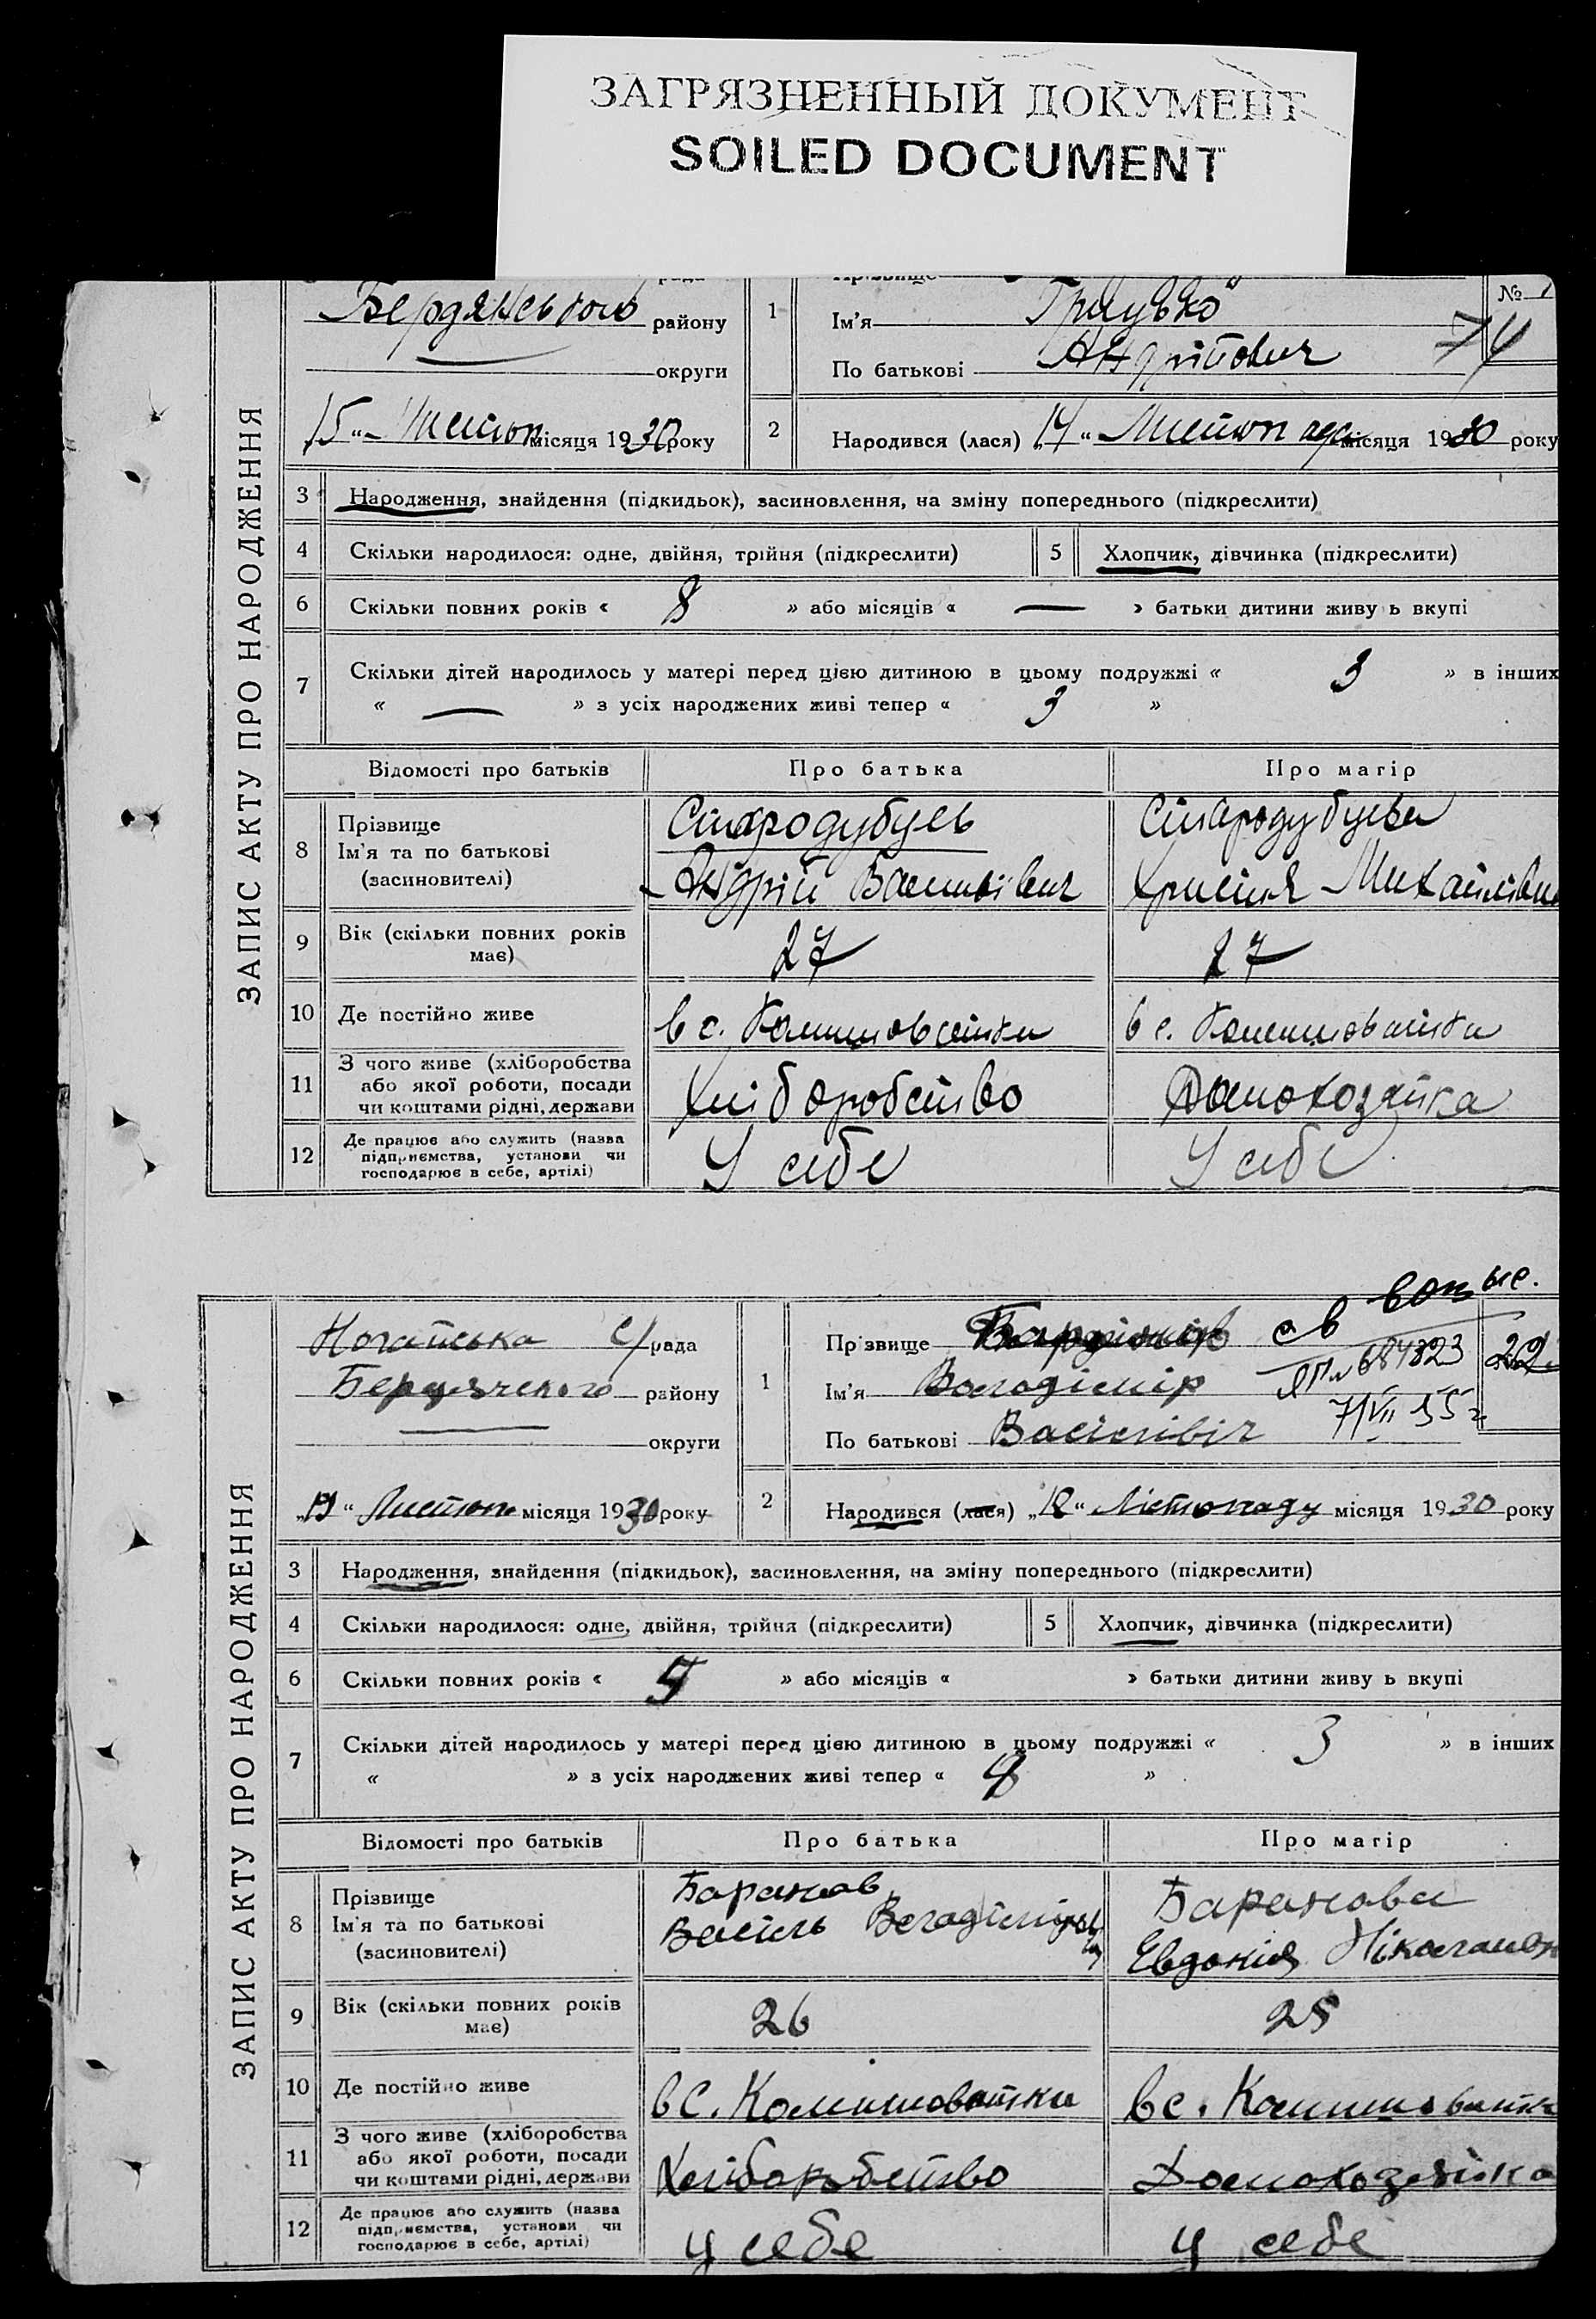 ЗАГРЯЗНЕННЫЙ ДОКУМЕНТ
SOILED DOCUMENT
ЗАПИС АКТУ ПРО НАРОДЖЕННЯ
Бердянського району
округи
15 “ Листоп місяця 1930 року
1
Ім'я Грицько
По батькові Андрійович
№
74
2
Народився (лася) „14 “ Листопада місяця 1930 року
3 Народження, знайдення (підкидьок), засиновлення, на зміну попереднього (підкреслити)
4 Скільки народилося: одне, двійня, трійня (підкреслити) 5 Хлопчик, дівчинка (підкреслити)
6 Скільки повних років « 8 » або місяців « — » батьки дитини живу ь вкупі
7 Скільки дітей народилось у матері перед цією дитиною в цьому подружжі « 3 » в інших
« — » з усіх народжених живі тепер « 3 »
Відомості про батьків Про батька Про матір
8 Прізвище
Ім'я та по батькові
(засиновителі)
Стародубцев
Андрій Васильївич
Стародубцева
Христя Михайлівна
9 Вік (скільки повних років має) 27 27
10 Де постійно живе в с. Комишоватки в с. Комишоватки
11 З чого живе (хліборобства
або якої роботи, посади
чи коштами рідні, держави
Хліборобство Домохозяйка
12 Де працює або служить (назва
підприємства, установи чи
господарює в себе, артілі)
У себе У себе
ЗАПИС АКТУ ПРО НАРОДЖЕННЯ
Ногайська с/рада
Бердянского району
округи
„19 “ Листопа місяця 1930 року
1
Прізвище
Ім'я Володімір
По батькові Васілівіч
ЯП № 684823
7/VII 55 г
22
2
Народився (лася) „18 “ Лістопаду місяця 1930 року
3 Народження, знайдення (підкидьок), засиновлення, на зміну попереднього (підкреслити)
4 Скільки народилося: одне, двійня, трійня (підкреслити) 5 Хлопчик, дівчинка (підкреслити)
6 Скільки повних років « » або місяців « » батьки дитини живу ь вкупі
7 Скільки дітей народилось у матері перед цією дитиною в цьому подружжі « 3 » в інших
« » з усіх народжених живі тепер « »
Відомості про батьків Про батька Про матір
8 Прізвище
Ім'я та по батькові
(засиновителі)
Баранов
Василь
Баранова
Евдокія
9 Вік (скільки повних років має) 26 25
10 Де постійно живе в с. Комишоватки в с. Комишоватк
11 З чого живе (хліборобства
або якої роботи, посади
чи коштами рідні, держави
Хліборобство Домохозяйка
12 Де працює або служить (назва
підприємства, установи чи
господарює в себе, артілі)
у себе у себе